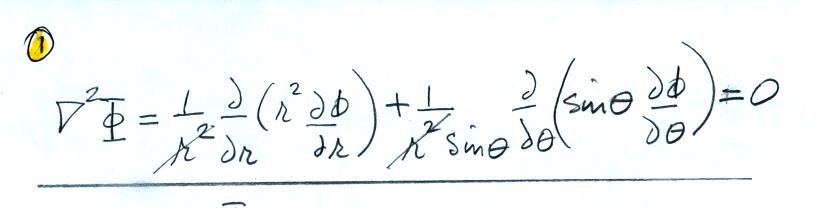 1
∇²Φ = 1/r² ∂/∂r (r² ∂ϕ/∂r) + 1/r² sinθ ∂/∂θ (sinθ ∂ϕ/∂θ) = 0